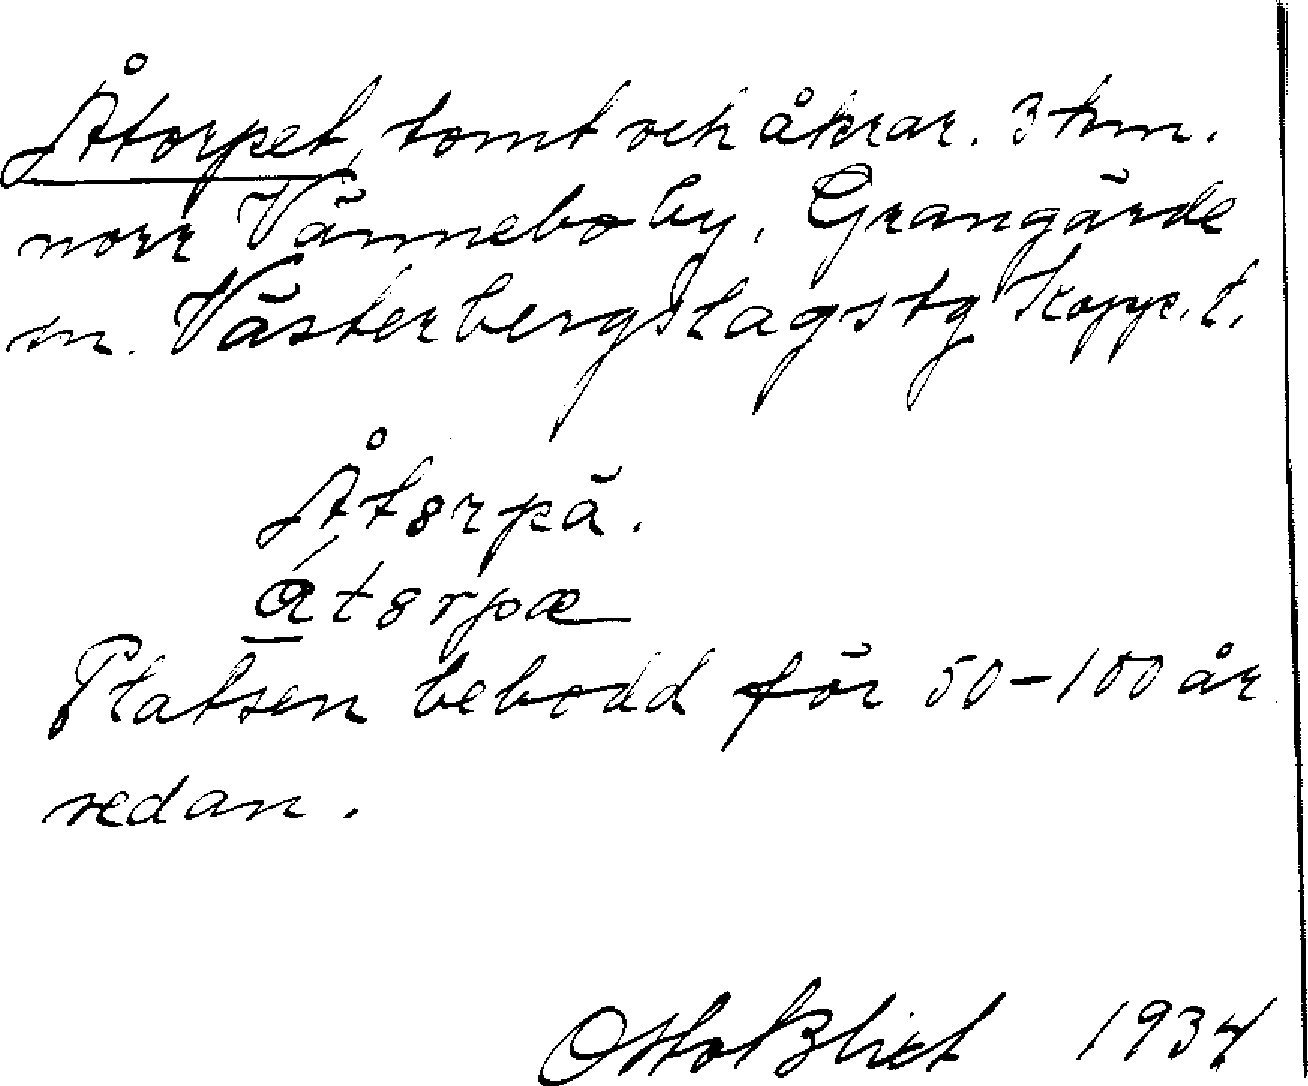 Åtorpet, tomt och åkrar. 3 km.
norr Vännebo by, Grangärde
sn. Västerbergslags tg Kopp. l.
Åt8rpä.
át8rpæ
Platsen bebodd för 50-100 år
redan.
Otto Blixt 1934